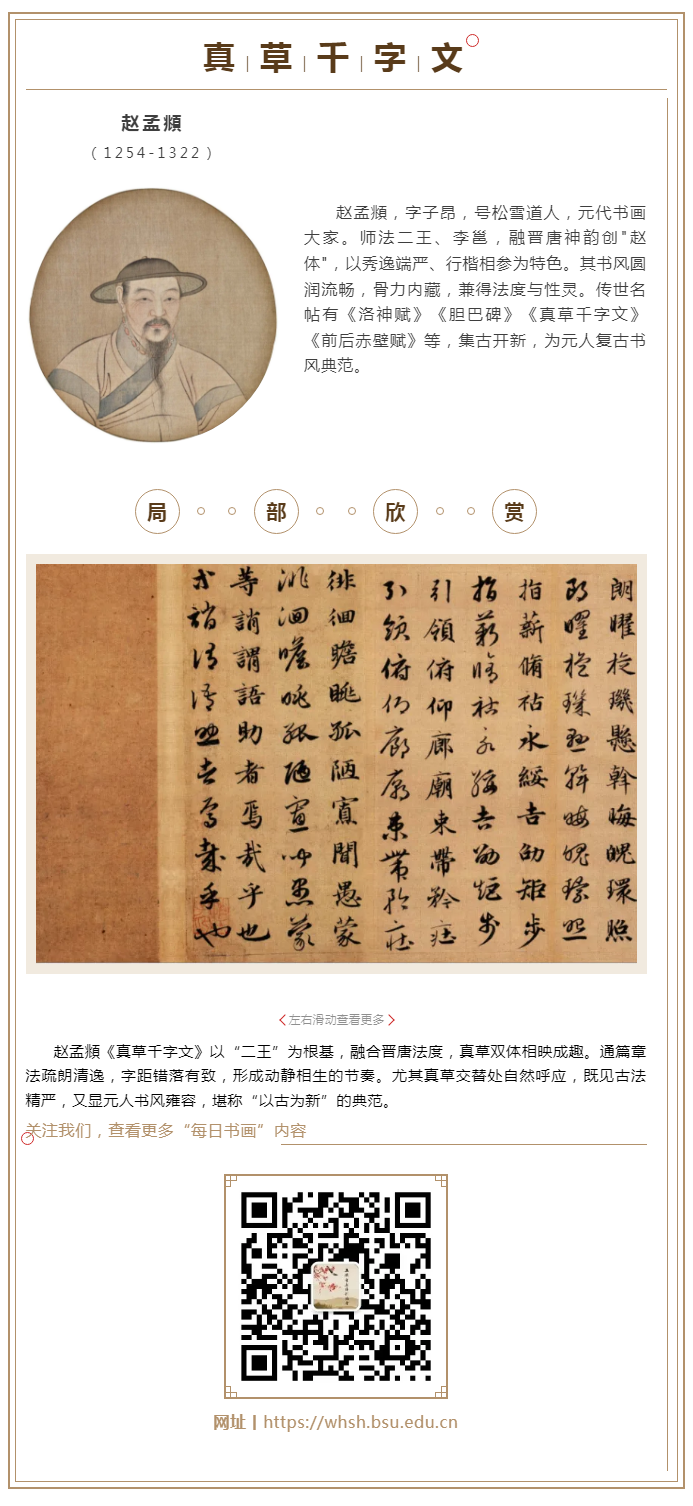 真草千字文
赵孟頫
（1254-1322）
赵孟頫，字子昂，号松雪道人，元代书画
大家。师法二王、李邕，融晋唐神韵创"赵
体"，以秀逸端严、行楷相参为特色。其书风圆
润流畅，骨力内藏，兼得法度与性灵。传世名
帖有《洛神赋》《胆巴碑》《真草千字文》
《前后赤壁赋》等，集古开新，为元人复古书
风典范。
局部欣赏
朗曜旋璣懸斡晦魄環照
朗曜旋璣懸斡晦魄環照
指薪脩祜永綏吉劭矩步
指薪脩祜永綏吉劭矩步
引領俯仰廊廟束帶矜莊
引領俯仰廊廟束帶矜莊
徘徊瞻眺孤陋寡聞愚蒙
徘徊瞻眺孤陋寡聞愚蒙
等誚謂語助者焉哉乎也
等誚謂語助者焉哉乎也
左右滑动查看更多
赵孟頫《真草千字文》以“二王”为根基，融合晋唐法度，真草双体相映成趣。通篇章
法疏朗清逸，字距错落有致，形成动静相生的节奏。尤其真草交替处自然呼应，既见古法
精严，又显元人书风雍容，堪称“以古为新”的典范。
关注我们，查看更多“每日书画”内容
网址丨https://whsh.bsu.edu.cn